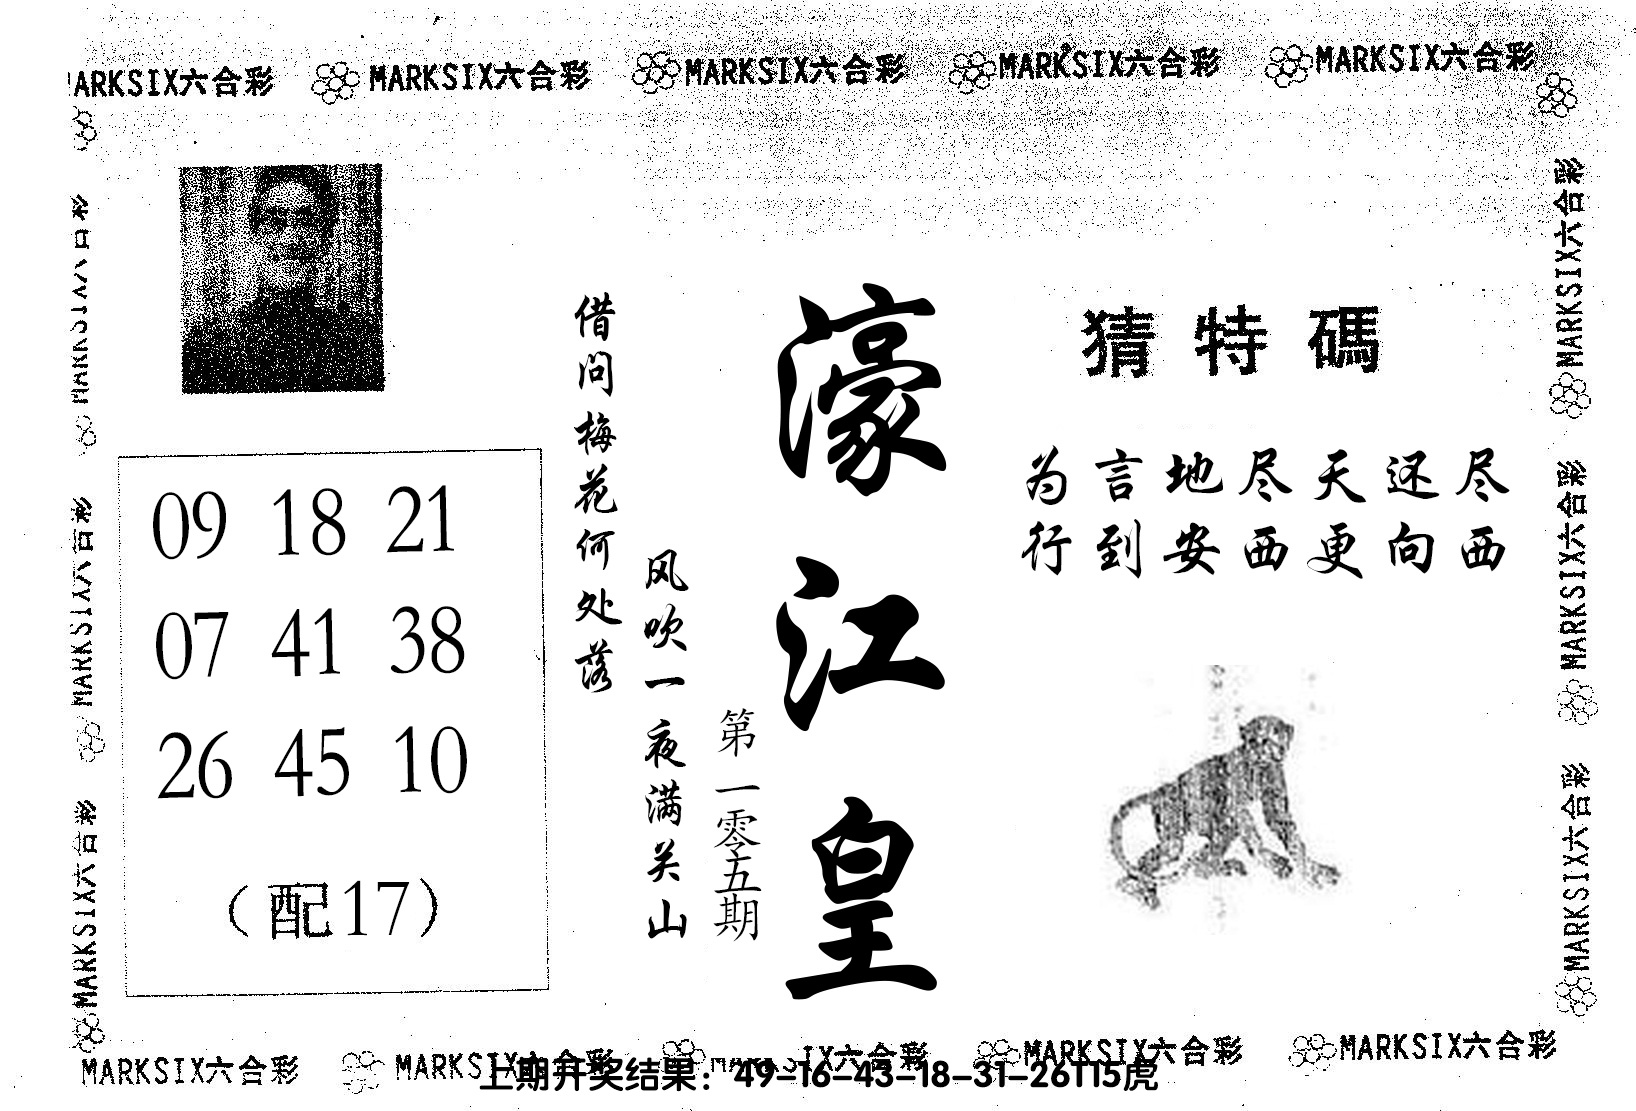 MARKSIX六合彩 MARKSIX六合彩 MARKSIX六合彩 MARKSIX六合彩 MARKSIX六合彩
MARKSIX六合彩
MARKSIX六合彩
MARKSIX六合彩
09 18 21
07 41 38
26 45 10
（配17）
借问梅花何处落
风吹一夜满关山
第一零五期
濠江皇
猜特碼
为言地尽天还尽
行到安西更向西
MARKSIX六合彩
MARKSIX六合彩
MARKSIX六合彩
MARKSIX六合彩 MARKSIX六合彩 MARKSIX六合彩 MARKSIX六合彩 MARKSIX六合彩
上期开奖结果：49-16-43-18-31-26T15虎